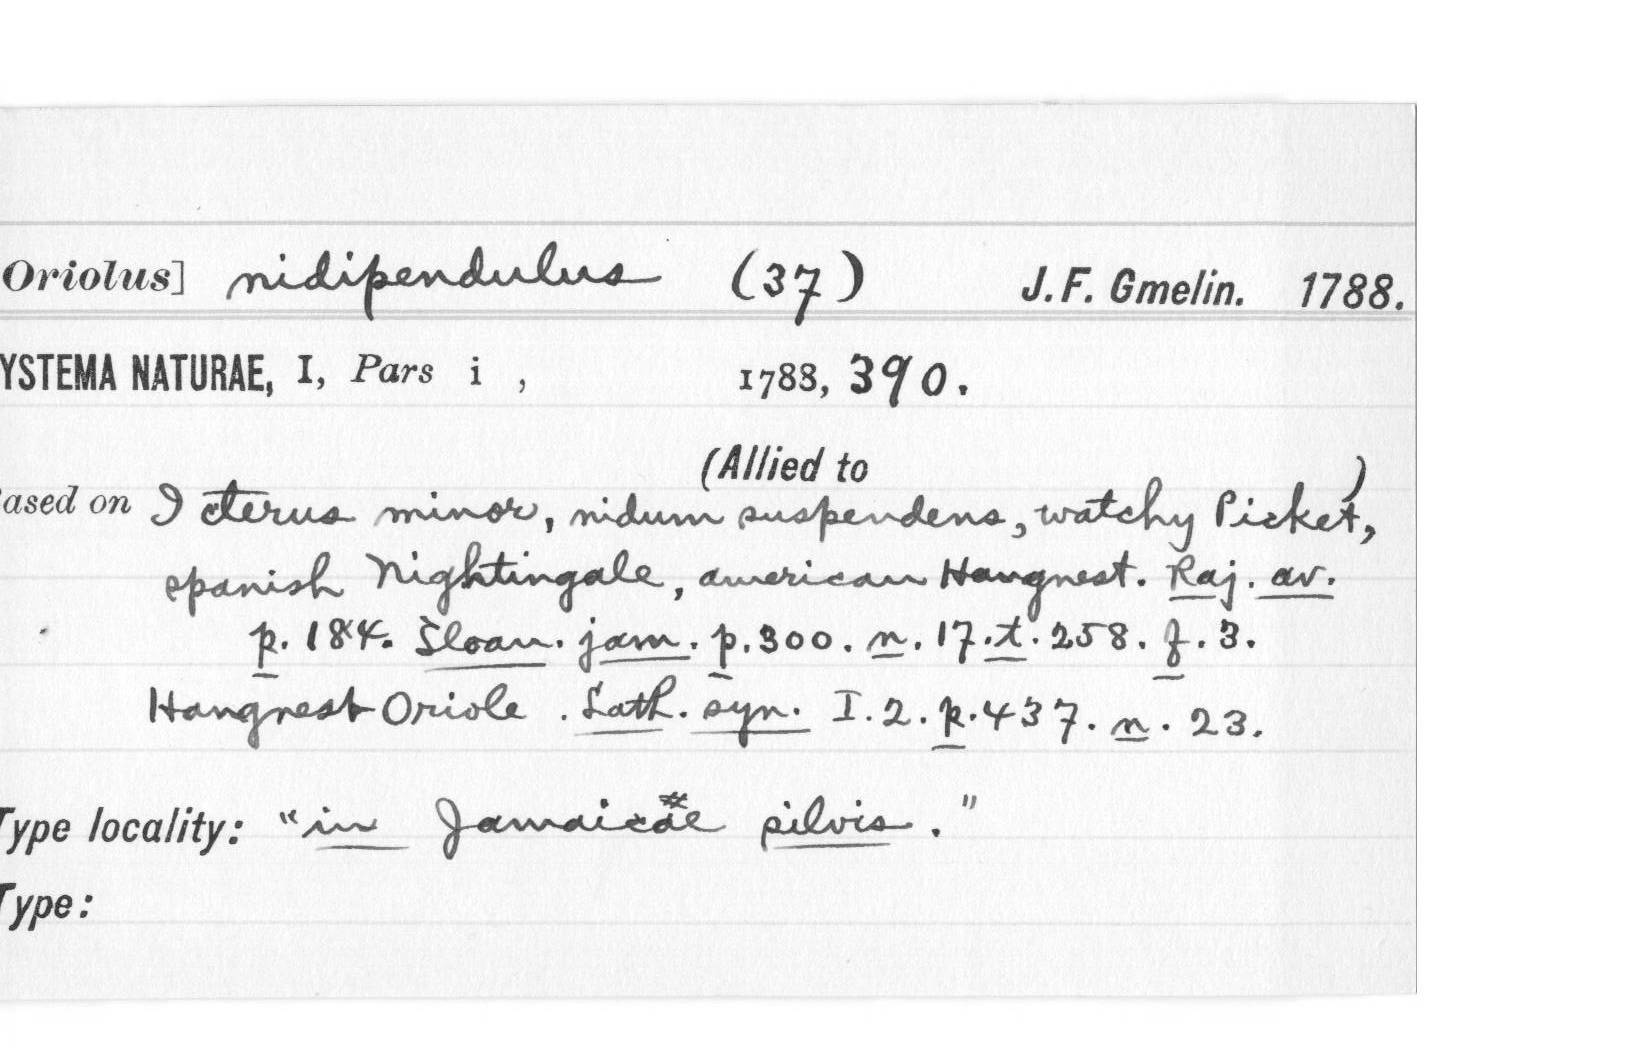 Oriolus] nidipendulus (37) J. F. Gmelin. 1788.
YSTEMA NATURAE, I, Pars i , 1788, 390.
(Allied to )
ased on Icterus minor, nidum suspendens, watchy Picket,
spanish Nightingale, american Hangnest. Raj. av.
p. 184. Sloan. jam. p. 300. n. 17. t. 258. f. 3.
Hangnest Oriole . Lath. syn. I. 2. p. 437. n. 23.
Type locality: "in Jamaicae silvis."
Type: